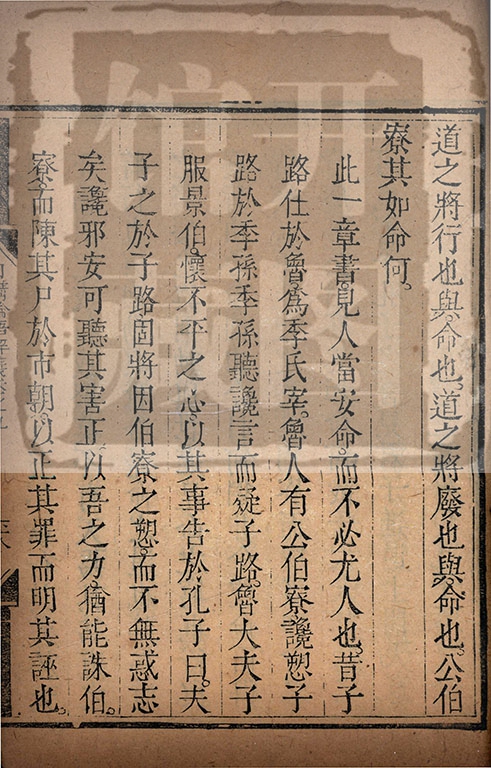 道之將行也與命也。道之將廢也與命也。公伯
寮其如命何。
此一章書見人當安命。而不必尤人也。昔子
路仕於魯爲季氏宰。魯人有公伯寮讒愬子
路於季孫季孫聽讒言而疑子路。魯大夫子
服景伯懷不平之心以其事告於孔子曰。夫
子之於子路固將因伯寮之愬。而不無惑志
矣讒邪安可聽其害正以吾之力。猶能誅伯
寮。而陳其尸於市朝。以正其罪而明其誣也。